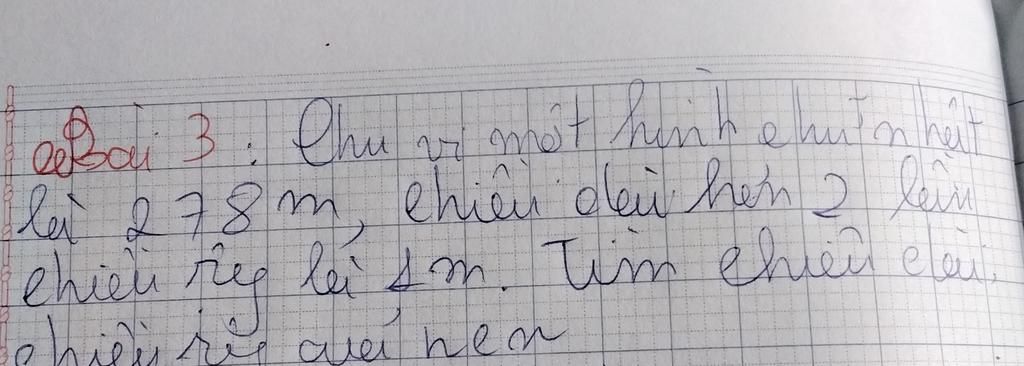 Bài 3: Chu vi một hình chữ nhật
là 278m, chiều dài hơn 2 lần
chiều rộg là 1m. Tìm chiều dài,
chiều rộg